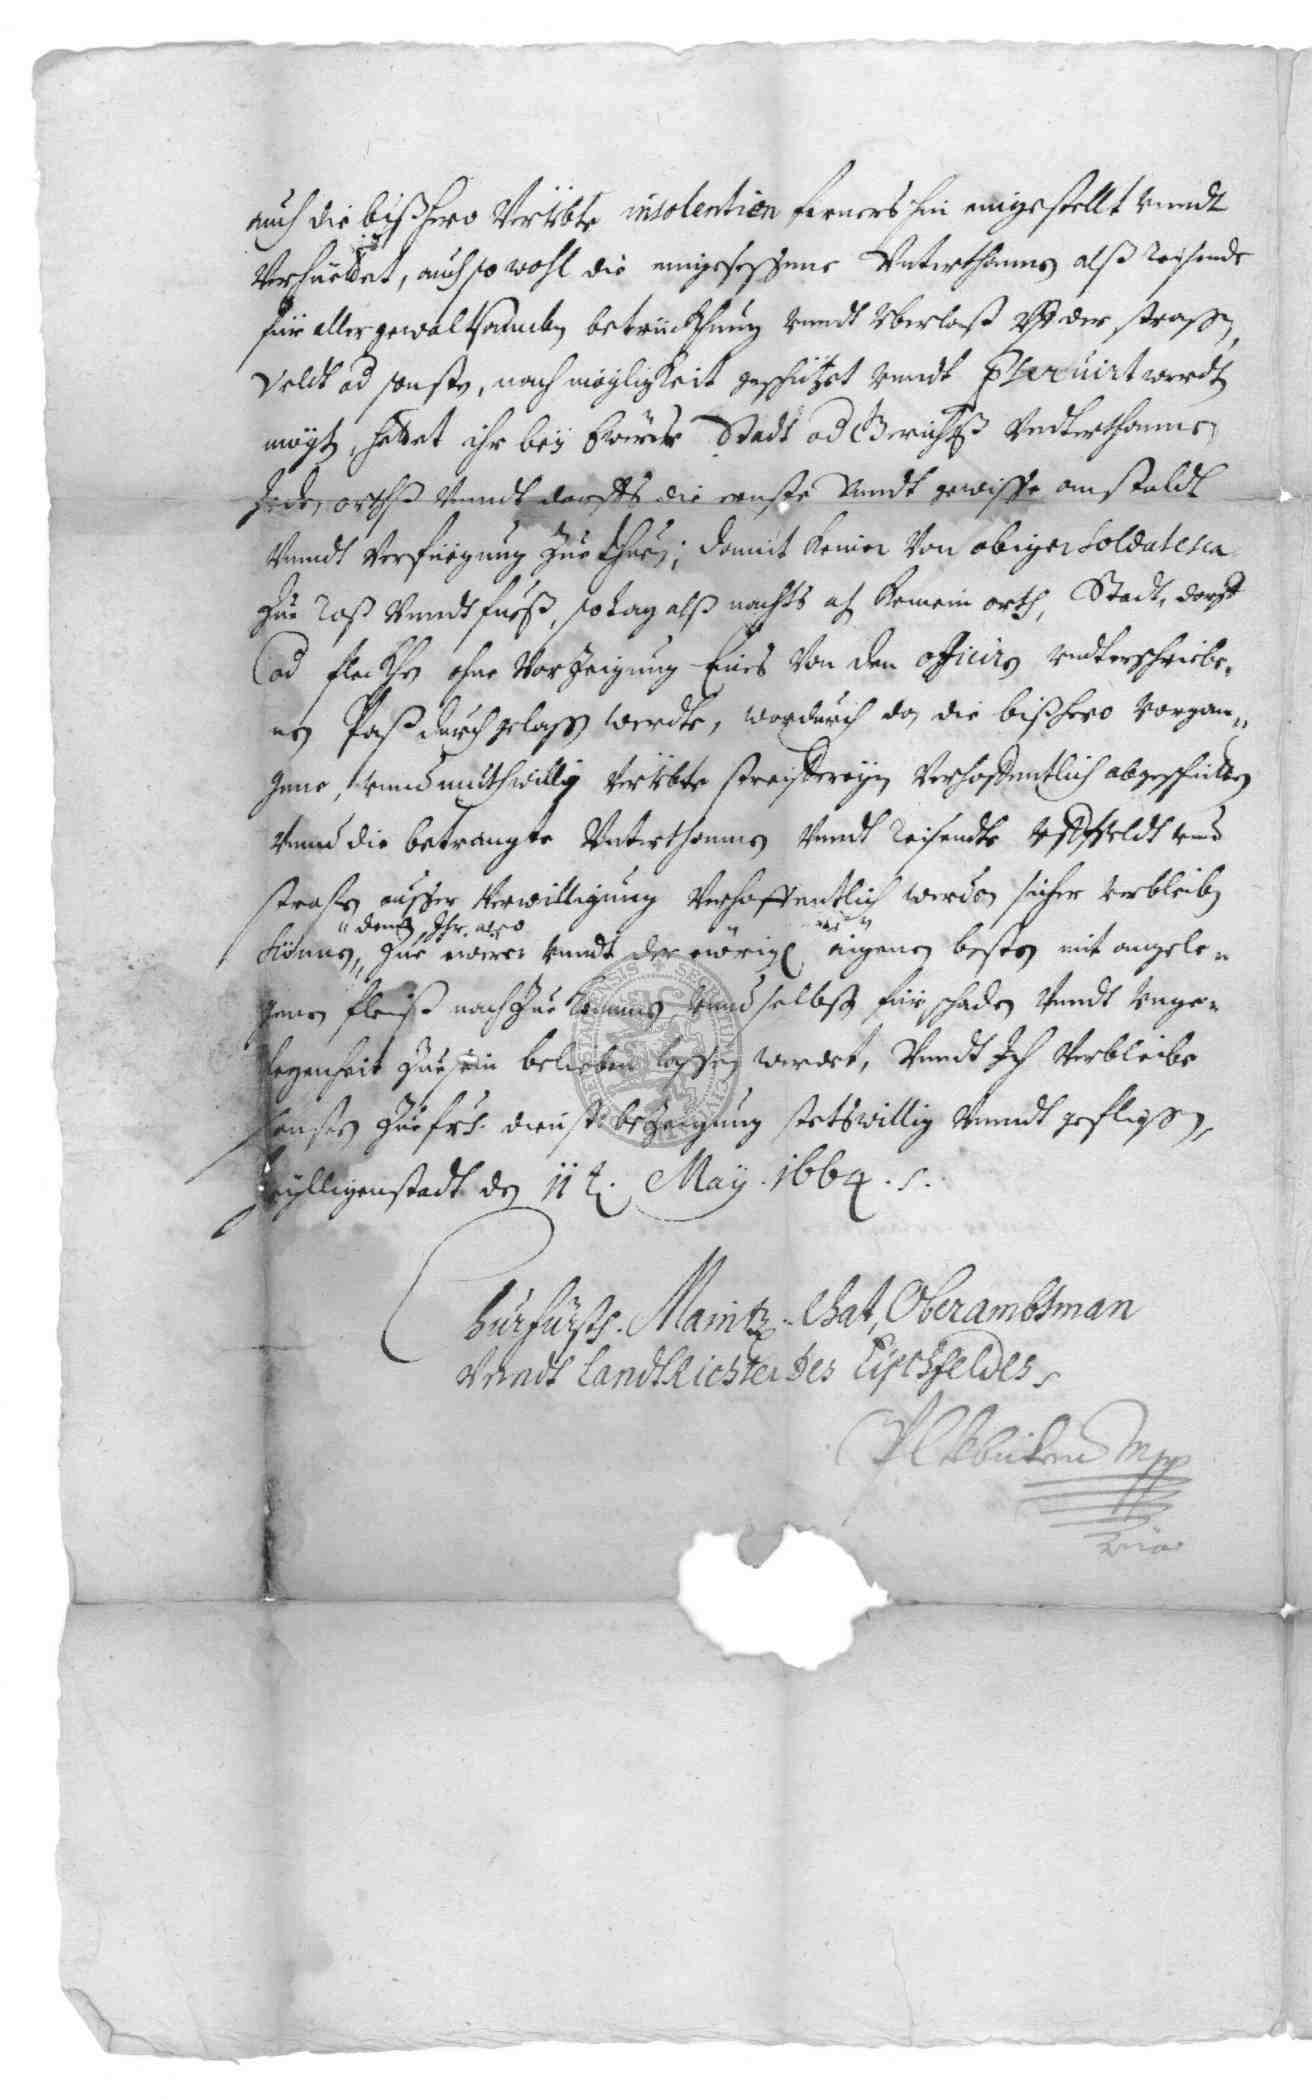 auch die bißhero Verübte insolentien ferners hin eingestellt vnndt
Verhüetet, auch so wohl die eingesessene Vnterthanen alß reisende
für aller gewaltsamben betrückhung vnndt überlast vff der strassen,
Veldt od sonsten, nach mögligkeit geschützet vnndt werdt
mögt, habet ihr beÿ Ewerer Stadt od Gerichts Vndterthanen
Jeden orthß vnndt dorffs die ernste vnndt gewisse anstaldt
vnndt Verfüegung Zue thuen; damit keiner Von obiger Soldatesca
Zue Roß vnndt fueß, so tag alß nachts ahn keinem orth, Stadt, dorff
od fleckhen ohne VorZeigung Eines Von den officirn vndterschriebe-
nen Paß durchgelassen werde, wordurch dan die bißhero vorgan-
gene, vnnd muthwillig Verübte streiffereÿen Verhoffentlich abgeschnitten
vnnd die betrangte Vnterthanen vnndt reisendte vff feldt vnd
strassen ausser Verwilligung Verhoffentlich werden sicher verbleiben
können, Zue ewerer vnndt der ewrigen eigenen besten mit angele-
genen fleiß nachZuekommen vnnd selbsten für schaden vnndt vnge-
legenheit Zue sein belieben lassen werdet, Vnndt Ich Verbleibe
sonsten Zue frdl. dienstbeZeigung stetswillig vnndt geflissen,
Heylligenstadt den 11t. May. 1664.
Churfürstl. Maintz. Rhat, Oberambtsman
Vnndt landtRichter des Eichsfeldes
Mpp